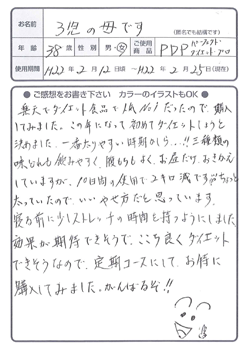 お名前 3児の母です
(匿名でも結構です)
年齢 38歳 男・女 ご使用商品 PDP パーフェクトダイエットプロ
使用期間 H22年2月12日頃〜H22年2月25日(現在)
●ご感想をお書き下さい カラーのイラストもOK●
楽天でダイエット食品で1位だったので、購入
してみました。この年になって初めてダイエットしようと
決めました。一番太りやすい時期かしら…!!三種類の
味どれも飲みやすく、腹もちもよく、お昼だけ、おきかえ
していますが、10日間の使用で2キロ減です。ちょっと
太っていたので、いいやせ方だと思っています。
寝る前に少しストレッチの時間を持つようにしました。
効果が期待できそうで、ここち良くダイエット
できそうなので、定期コースにして、お得に
購入してみました。がんばるぞ!!